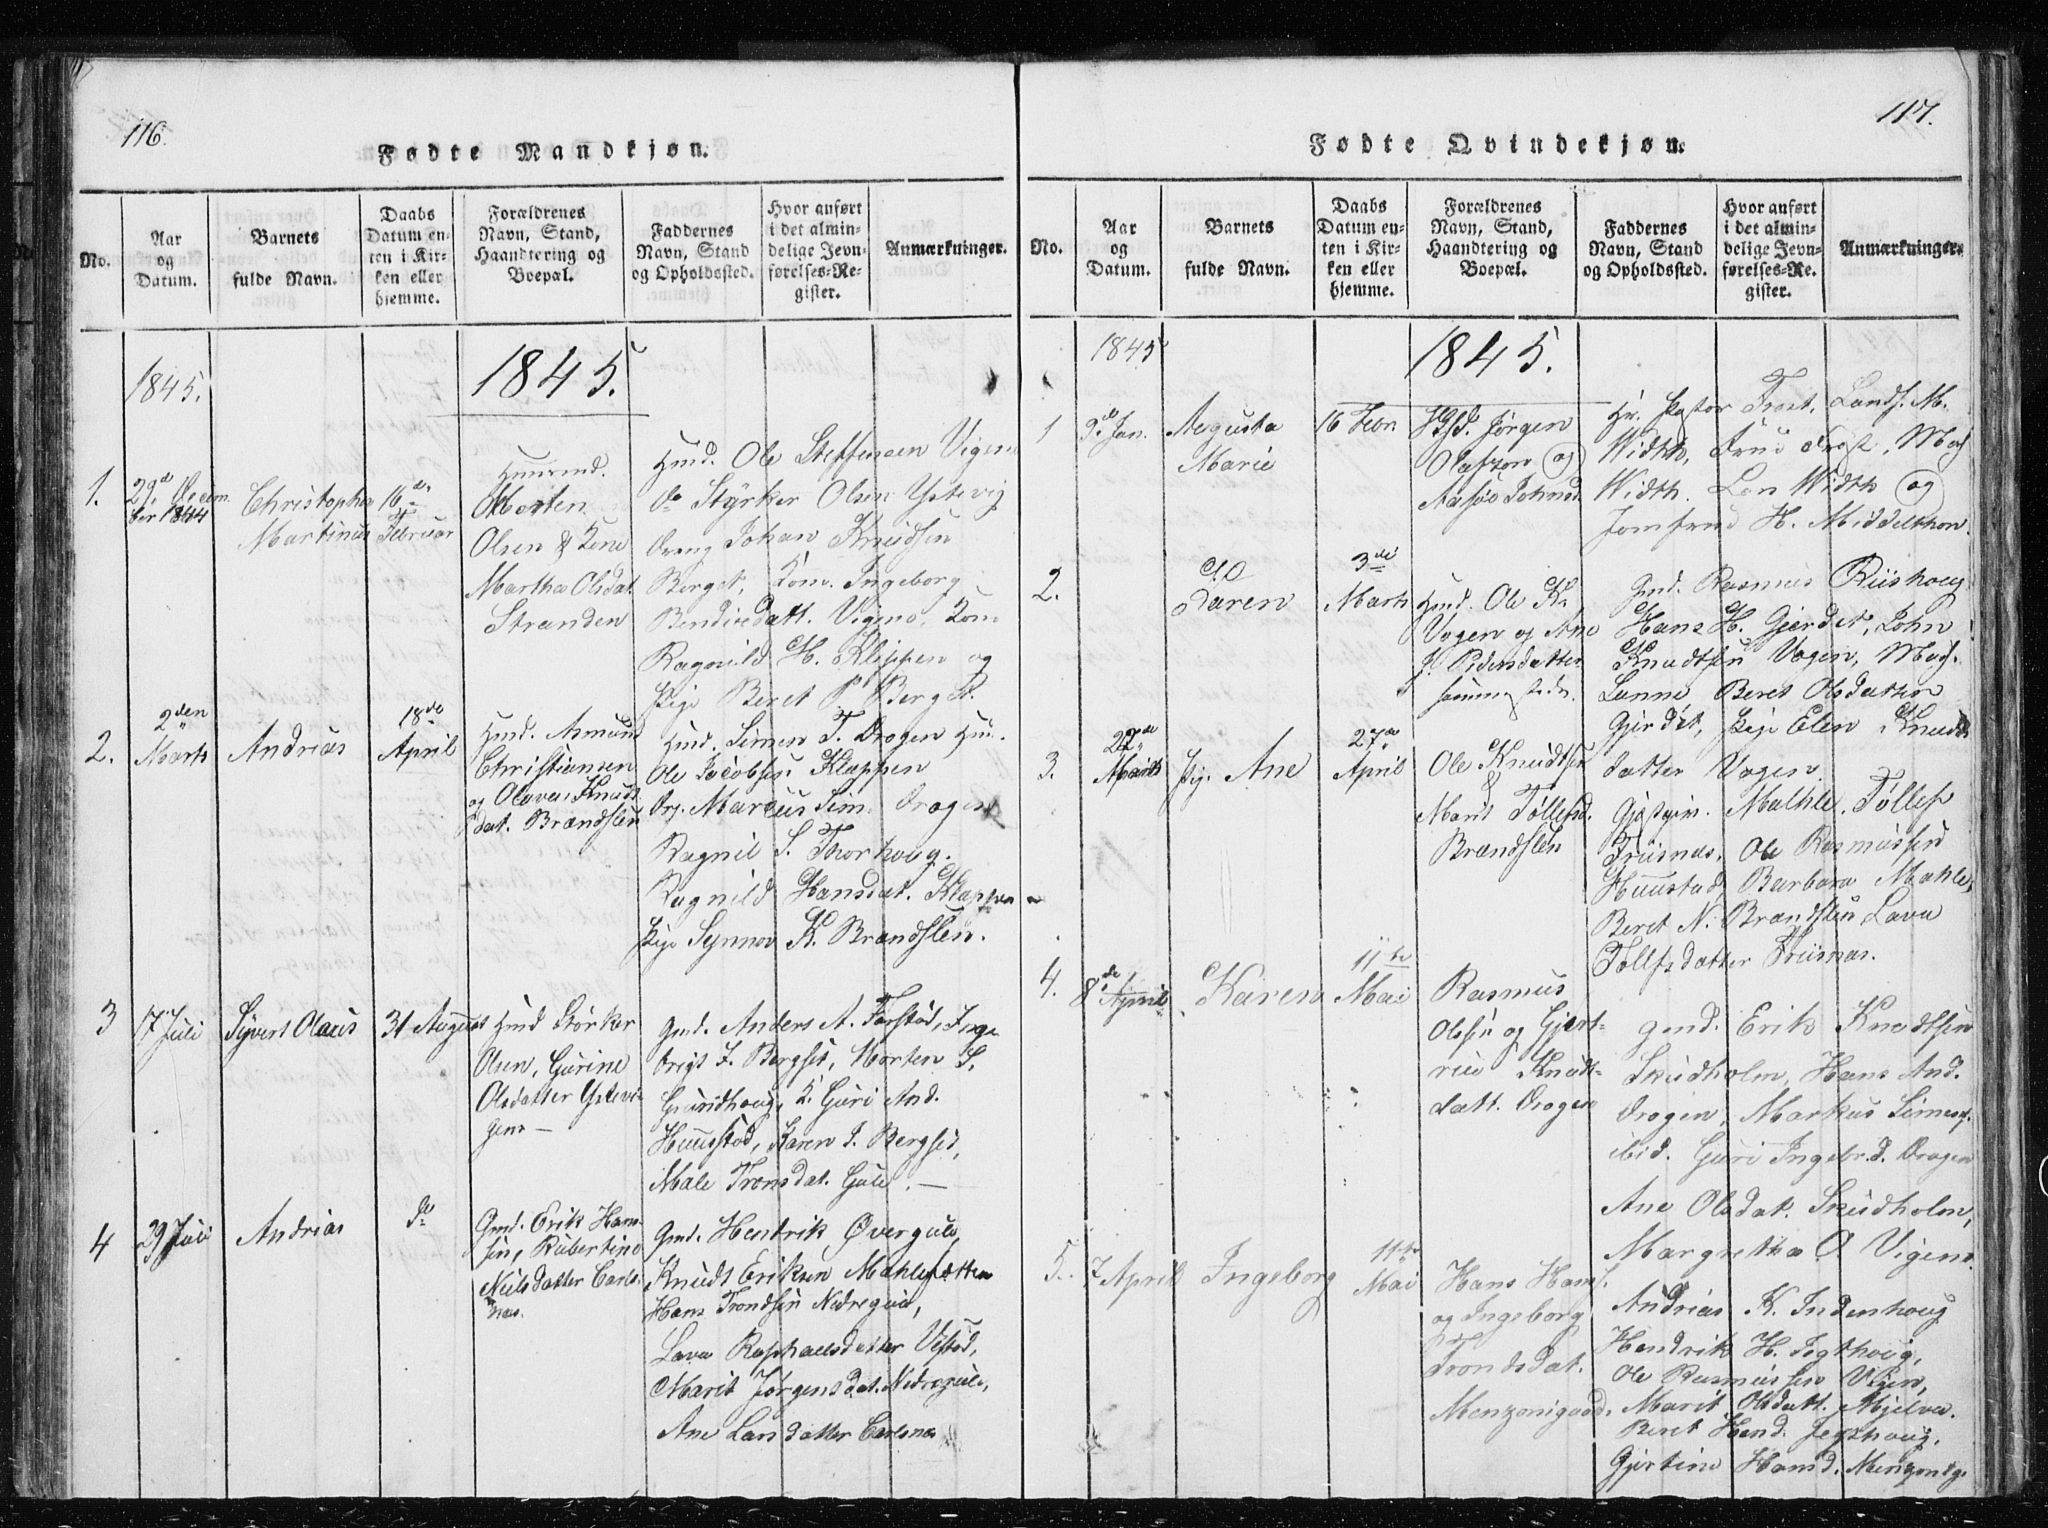 116.
Fødte Mandkjøn.
No.
Aar
og
Datum.
Barnets
fulde Navn.
Daabs
Datum en-
ten i Kir-
ken eller
hjemme.
Forældrenes
Navn, Stand,
Haandtering og
Boepæl.
Faddernes
Navn, Stand
og Opholdssted.
Hvor anført
i det almin-
delige Jevn-
førelses-Re-
gister.
Anmærkninger.
1845.
1845.
1.
29de Decem
ber 1844
Christopher
Martinus
16de
Februar
Huusmd.
Morten
Olsen & Kone
Martha Olsdat.
Stranden
Huusmd. Ole Steffensen Vigen
do Styrker Olsen Ystevig
Dreng Johan Knudsen
Berget, Kone Ingeborg
Bendixdatt. Vigen, Kone
Ragnild H. Klippen og
Pige Beret P. Berget.
2.
2den
Marts
Andreas
18de
April
Huusmd. Asmund
Christiansen
og Olava Knuds
dat. Brandslen
Huusmd. Simen T. Drogen
Ole Jacobsen Klappen
Drg. Marcus Sim. Drogen
Ragnil S. Thorhoug.
Ragnild Hansdat. Klappen
Pige Synnov K. Brandslen.
3
17 Juli
Syvert Olaus
31 August
Huusmd Størker
Olsen, Gurine
Olsdatter Ystevi-
gen —
Gmd. Anders A. Farstad, Inge
brigt J. Bergset, Morten S.
K. Guri And.
Huustad, Karen J. Bergset,
Male Tronsdat. Gule. —
4
29 Juli
Andreas
do
Gmd. Erik Han-
sen, Rubertine
Nielsdatter Carls-
næs.
Gmd. Hendrik Øvergule,
Knudt Eriksen Mahlesætter
Hans Trondsen Nedregule,
Lava Raphaelsdatter Vestad,
Marit Jørgensdat. Nedregule,
Ane Larsdatter Carlsnæs
117.
Fødte Qvindekjøn.
No.
Aar
og
Datum.
Barnets
fulde Navn.
Daabs
Datum en-
ten i Kir-
ken eller
hjemme.
Forældrenes
Navn, Stand,
Haandtering og
Boepæl.
Faddernes
Navn, Stand
og Opholdssted.
Hvor anført
i det almin-
delige Jevn-
førelses-Re-
gister.
Anmærkninger.
1845
1845.
1
9de Jan.
Augusta
Marie
16 Febr
Jørgen
Olafson og
Hr. Pastor Frost, Landh. M.
Width, Frue Frost, Mad
Width. Len Width og
Jomfrue H. Middelthon.
2.
Karen
3de
Marts
Huusmd. Ole K.
Vogen og Ane
P. Pedersdatter
sammesteds.
Gmd. Rasmus Riishoug
Hans H. Gjerdet, John
Knudtsen Vogen, Mad.
Lanne Beret Olsdatter
Gjerdet, Pige Elen Knuds
datter Vogen.
3.
22de
Marts
Pig. Ane
27de
April
Ole Knudtsen
&
Marit Tollefsd.
Brandslen
Gjestgiv. Mahle, Tollef
Friisnæs, Ole Rasmussen
Huustad, Barbara Mahle,
Beret N. Brandslen Lava
Tollefsdatter Friisnæs.
4.
8de April
Karen
11te
Mai
Rasmus
Olsen og Gjert-
rue Knuds-
datt. Drogen
Gmd. Erik Knudtsen
Skudholm, Hans And.
Drogen, Markus Simens.
ibid. Guri Ingebr.d. Drogen
Ane Olsdat. Skudholm,
Margretha O. Vigen.
5.
7 April
Ingeborg
11te
Mai
Hans Hans.
og Ingeborg
Trondsdat.
Menzonigaard.
Andreas K. Indenhoug
Hendrik H. Jegthoug,
Ole Rasmussen Vigen,
Marit Olsdatt. Mjelva.
Beret Hend. Jegthoug,
Gjertine Hansd. Menzonig.